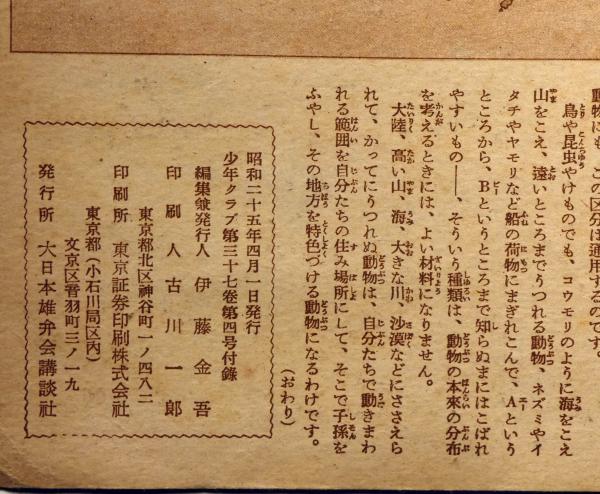 動物にも、この区分は通用するのです。
鳥や昆虫やけものでも、コウモリのように海をこえ
山をこえ、遠いところまでうつれる動物、ネズミやイ
タチやヤモリなど船の荷物にまぎれこんで、Aという
ところから、Bというところまで知らぬまにはこばれ
やすいもの――、そういう種類は、動物の本來の分布
を考えるときには、よい材料になりません。
大陸、高い山、海、大きな川、沙漠などにささえら
れて、かってにうつれぬ動物は、自分たちで動きまわ
れる範囲を自分たちの住み場所にして、そこで子孫を
ふやし、その地方を特色づける動物になるわけです。
(おわり)
昭和二十五年四月一日発行
少年クラブ第三十七卷第四号付錄
編集兼発行人 伊藤金吾
印刷人 古川一郎
東京都北区神谷町一ノ四八二
印刷所 東京証券印刷株式会社
東京都(小石川局区内)
文京区音羽町三ノ一九
発行所 大日本雄弁会講談社